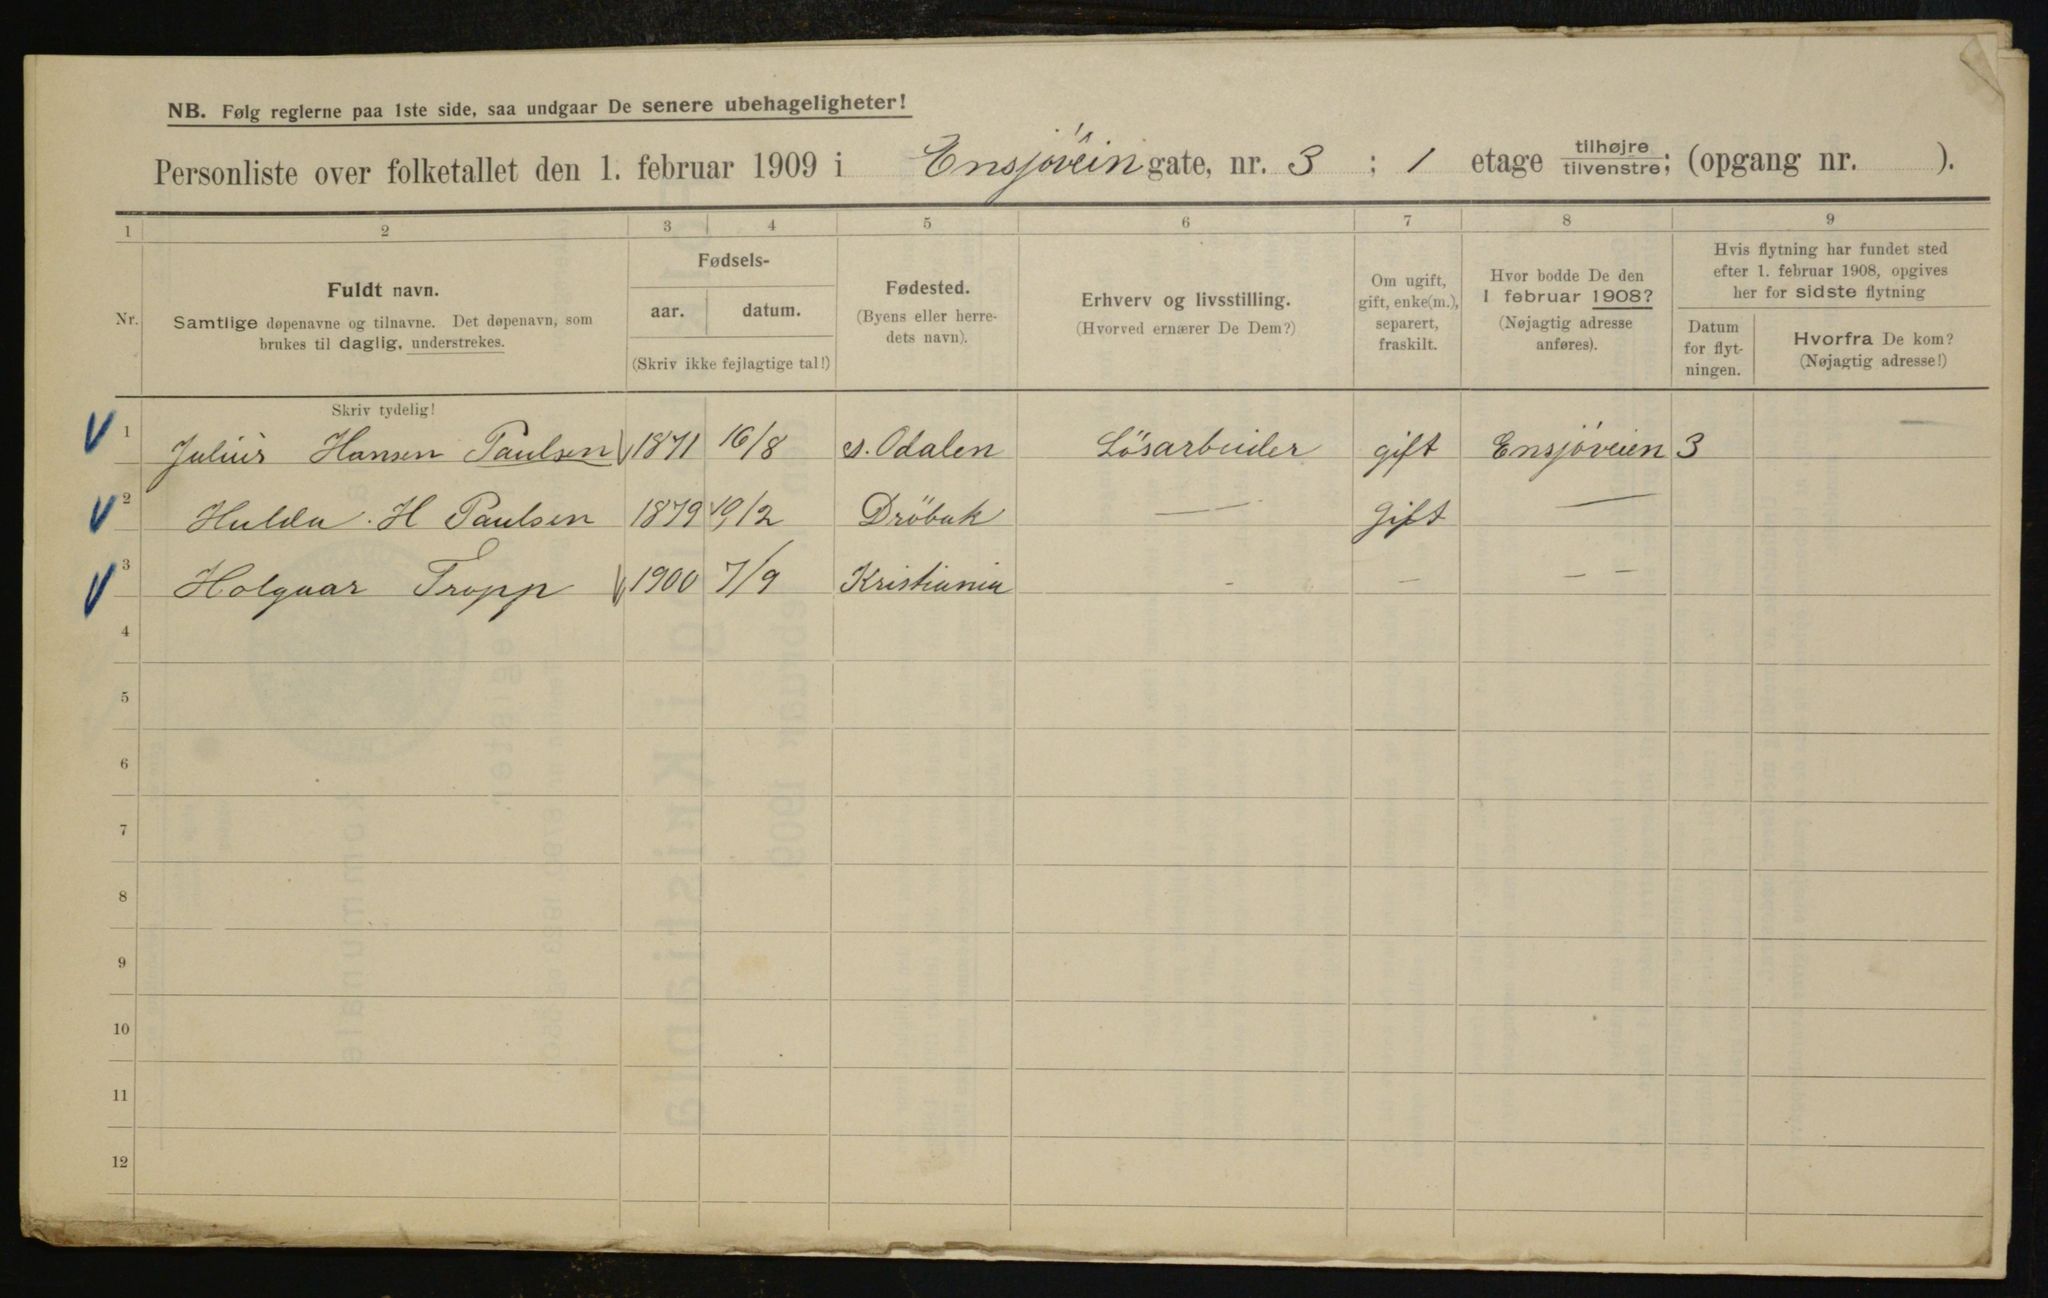 NB. Følg reglerne paa 1ste side, saa undgaar De senere ubehageligheter!
Personliste over folketallet den 1. februar 1909 i Ensjøvein gate, nr. 3 ; 1 etage tilhøjre tilvenstre; (opgang nr. ).
1 2 3 4 5 6 7 8 9
Nr.
Fuldt navn.
Samtlige døpenavne og tilnavne. Det døpenavn, som
brukes til daglig, understrekes.
Fødsels-
aar. datum.
(Skriv ikke fejlagtige tal!)
Fødested.
(Byens eller herre-
dets navn).
Erhverv og livsstilling.
(Hvorved ernærer De Dem?)
Om ugift,
gift, enke(m.),
separert,
fraskilt.
Hvor bodde De den
1 februar 1908?
(Nøjagtig adresse
anføres).
Hvis flytning har fundet sted
efter 1. februar 1908, opgives
her for sidste flytning
Datum
for flyt-
ningen.
Hvorfra De kom?
(Nøjagtig adresse!)
Skriv tydelig!
1 Julius Hansen Paulsen 1871 16/8 s. Odalen Lösarbeider gift Ensjöveien 3 —
2 Hulda. H Paulsen 1879 19/2 Dröbak — — Gift —
3 Holgaar Tropp 1900 7/9 Kristiania - - — —
4
5
6
7
8
9
10
11
12